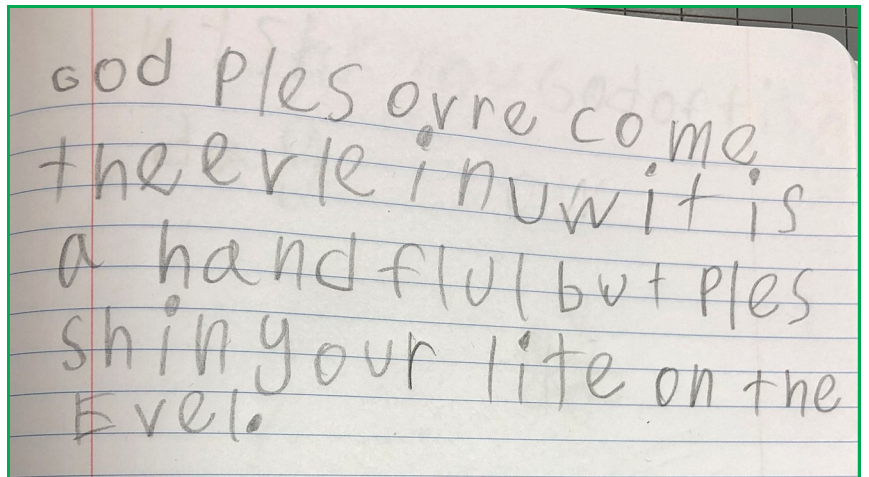 God Ples ovre come
the evle in uw it is
a handflul but ples
shin your lite on the
Evel.